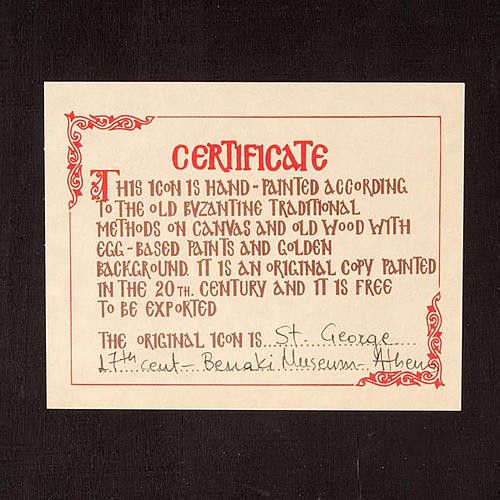 CERTIFICATE
THIS ICON IS HAND-PAINTED ACCORDING
TO THE OLD BVZANTINE TRADITIONAL
METHODS ON CANVAS AND OLD WOOD WITH
EGG-BASED PAINTS AND GOLDEN
BACKGROUND. IT IS AN ORIGINAL COPY PAINTED
IN THE 20TH. CENTURY AND IT IS FREE
TO BE EXPORTED
THE ORIGINAL ICON IS...St. George......
17th cent - Benaki Museum - Athens